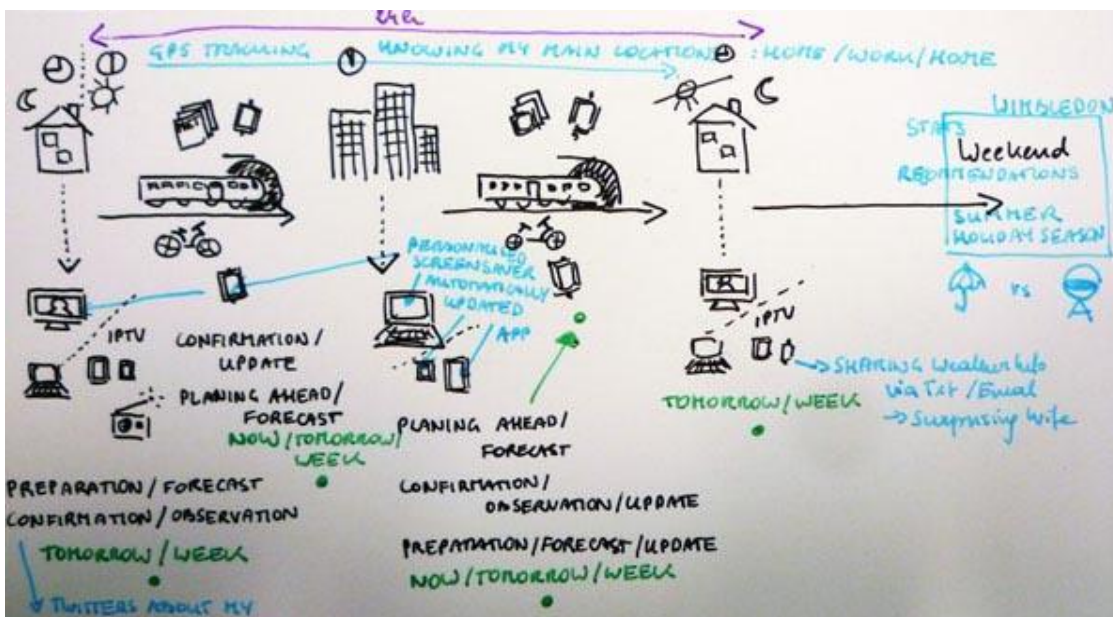 24h
GPS TRACKING
KNOWING MY MAIN LOCATIONS : HOME / WORK / HOME
WIMBLEDON
STATS
Weekend
RECOMMENDATIONS
SUMMER
HOLIDAY SEASON
vs
IPTV
CONFIRMATION /
UPDATE
PLANING AHEAD /
FORECAST
NOW / TOMORROW /
WEEK
PREPARATION / FORECAST
CONFIRMATION / OBSERVATION
TOMORROW / WEEK
TWITTERS ABOUT MY
PERSONALISED
SCREENSAVER
AUTOMATICALLY
UPDATED
APP
PLANING AHEAD /
FORECAST
CONFIRMATION /
OBSERVATION / UPDATE
PREPARATION / FORECAST / UPDATE
NOW / TOMORROW / WEEK
IPTV
TOMORROW / WEEK
SHARING Weather info
via Txt / Email
Surprising Wife